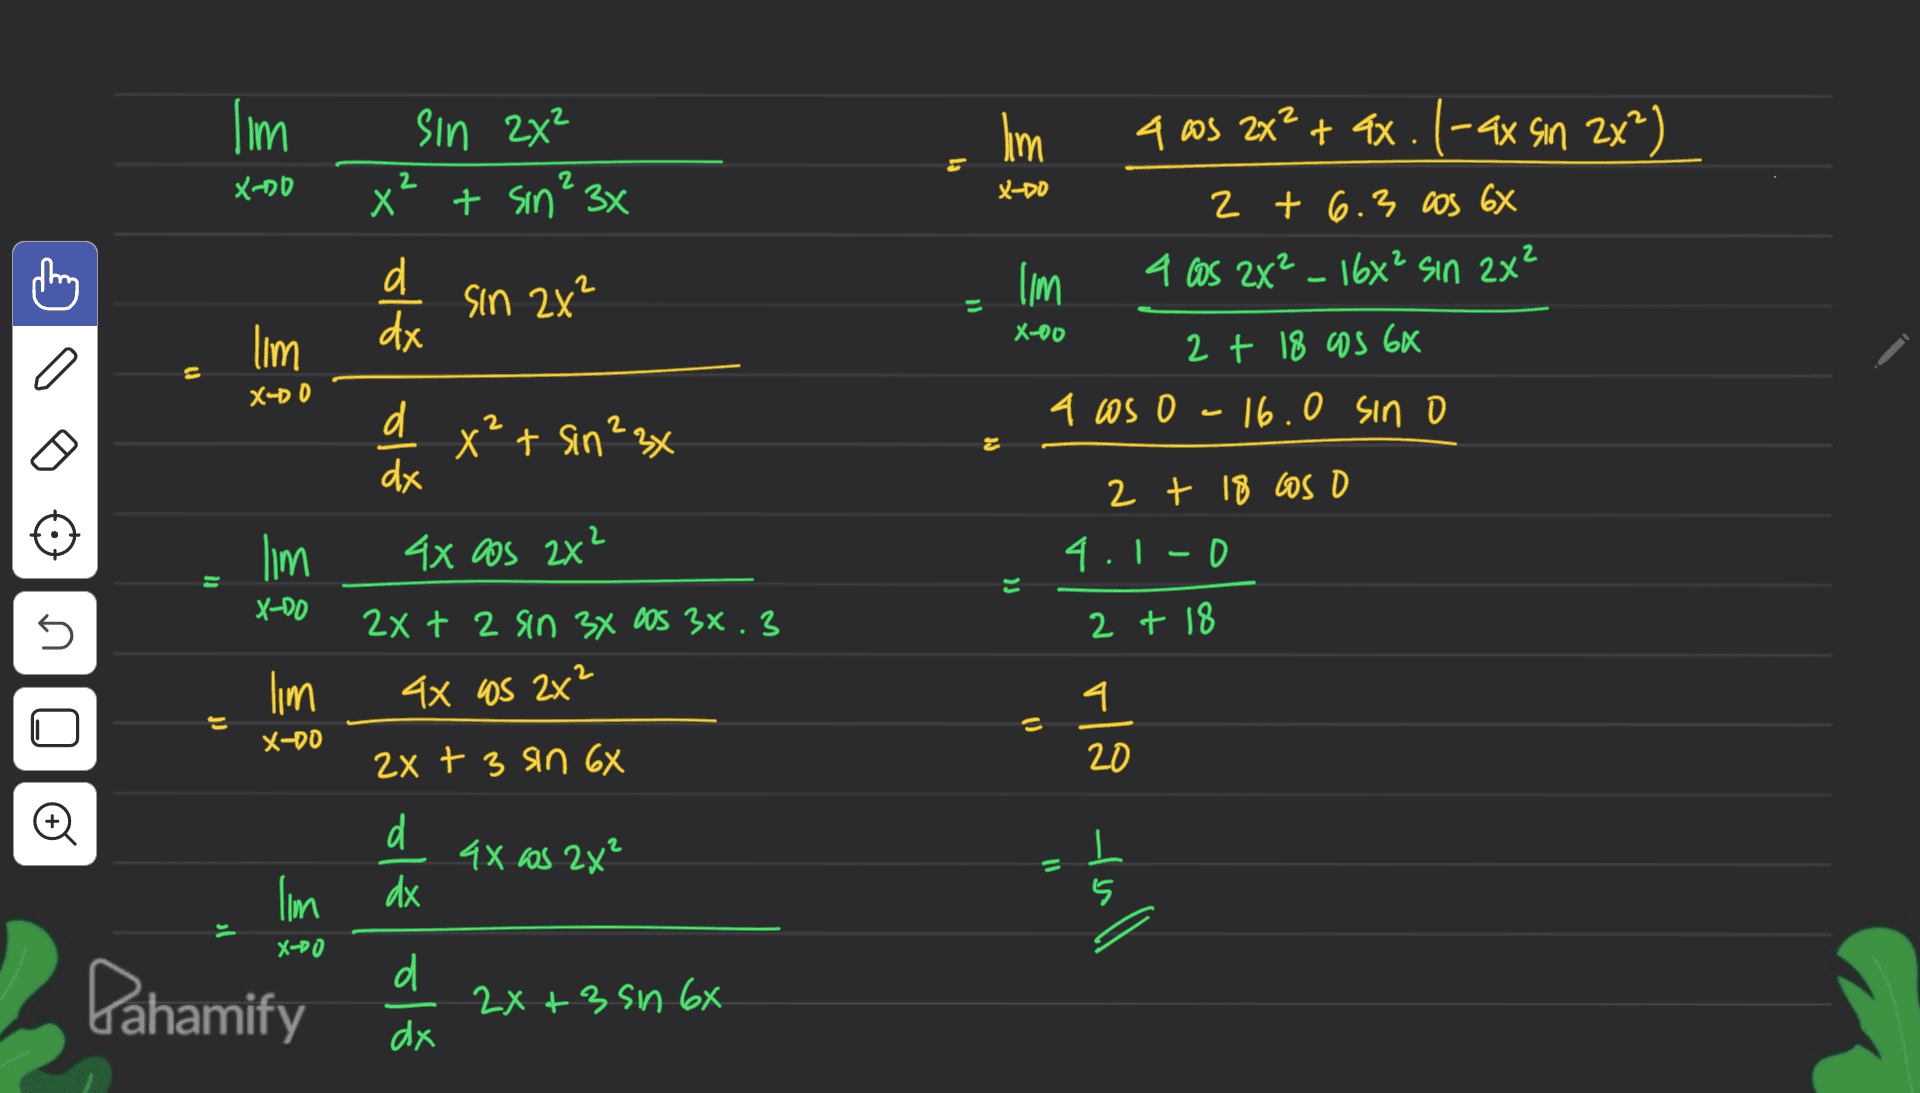 lim x→0 sin 2x² / x² + sin² 3x
= lim x→0 d/dx sin 2x² / d/dx x² + sin² 3x
= lim x→0 4x cos 2x² / 2x + 2 sin 3x cos 3x . 3
= lim x→0 4x cos 2x² / 2x + 3 sin 6x
= lim x→0 d/dx 4x cos 2x² / d/dx 2x + 3 sin 6x
= lim x→0 4 cos 2x² + 4x . (-4x sin 2x²) / 2 + 6.3 cos 6x
= lim x→0 4 cos 2x² - 16x² sin 2x² / 2 + 18 cos 6x
= 4 cos 0 - 16.0 sin 0 / 2 + 18 cos 0
= 4.1 - 0 / 2 + 18
= 4 / 20
= 1 / 5
Pahamify